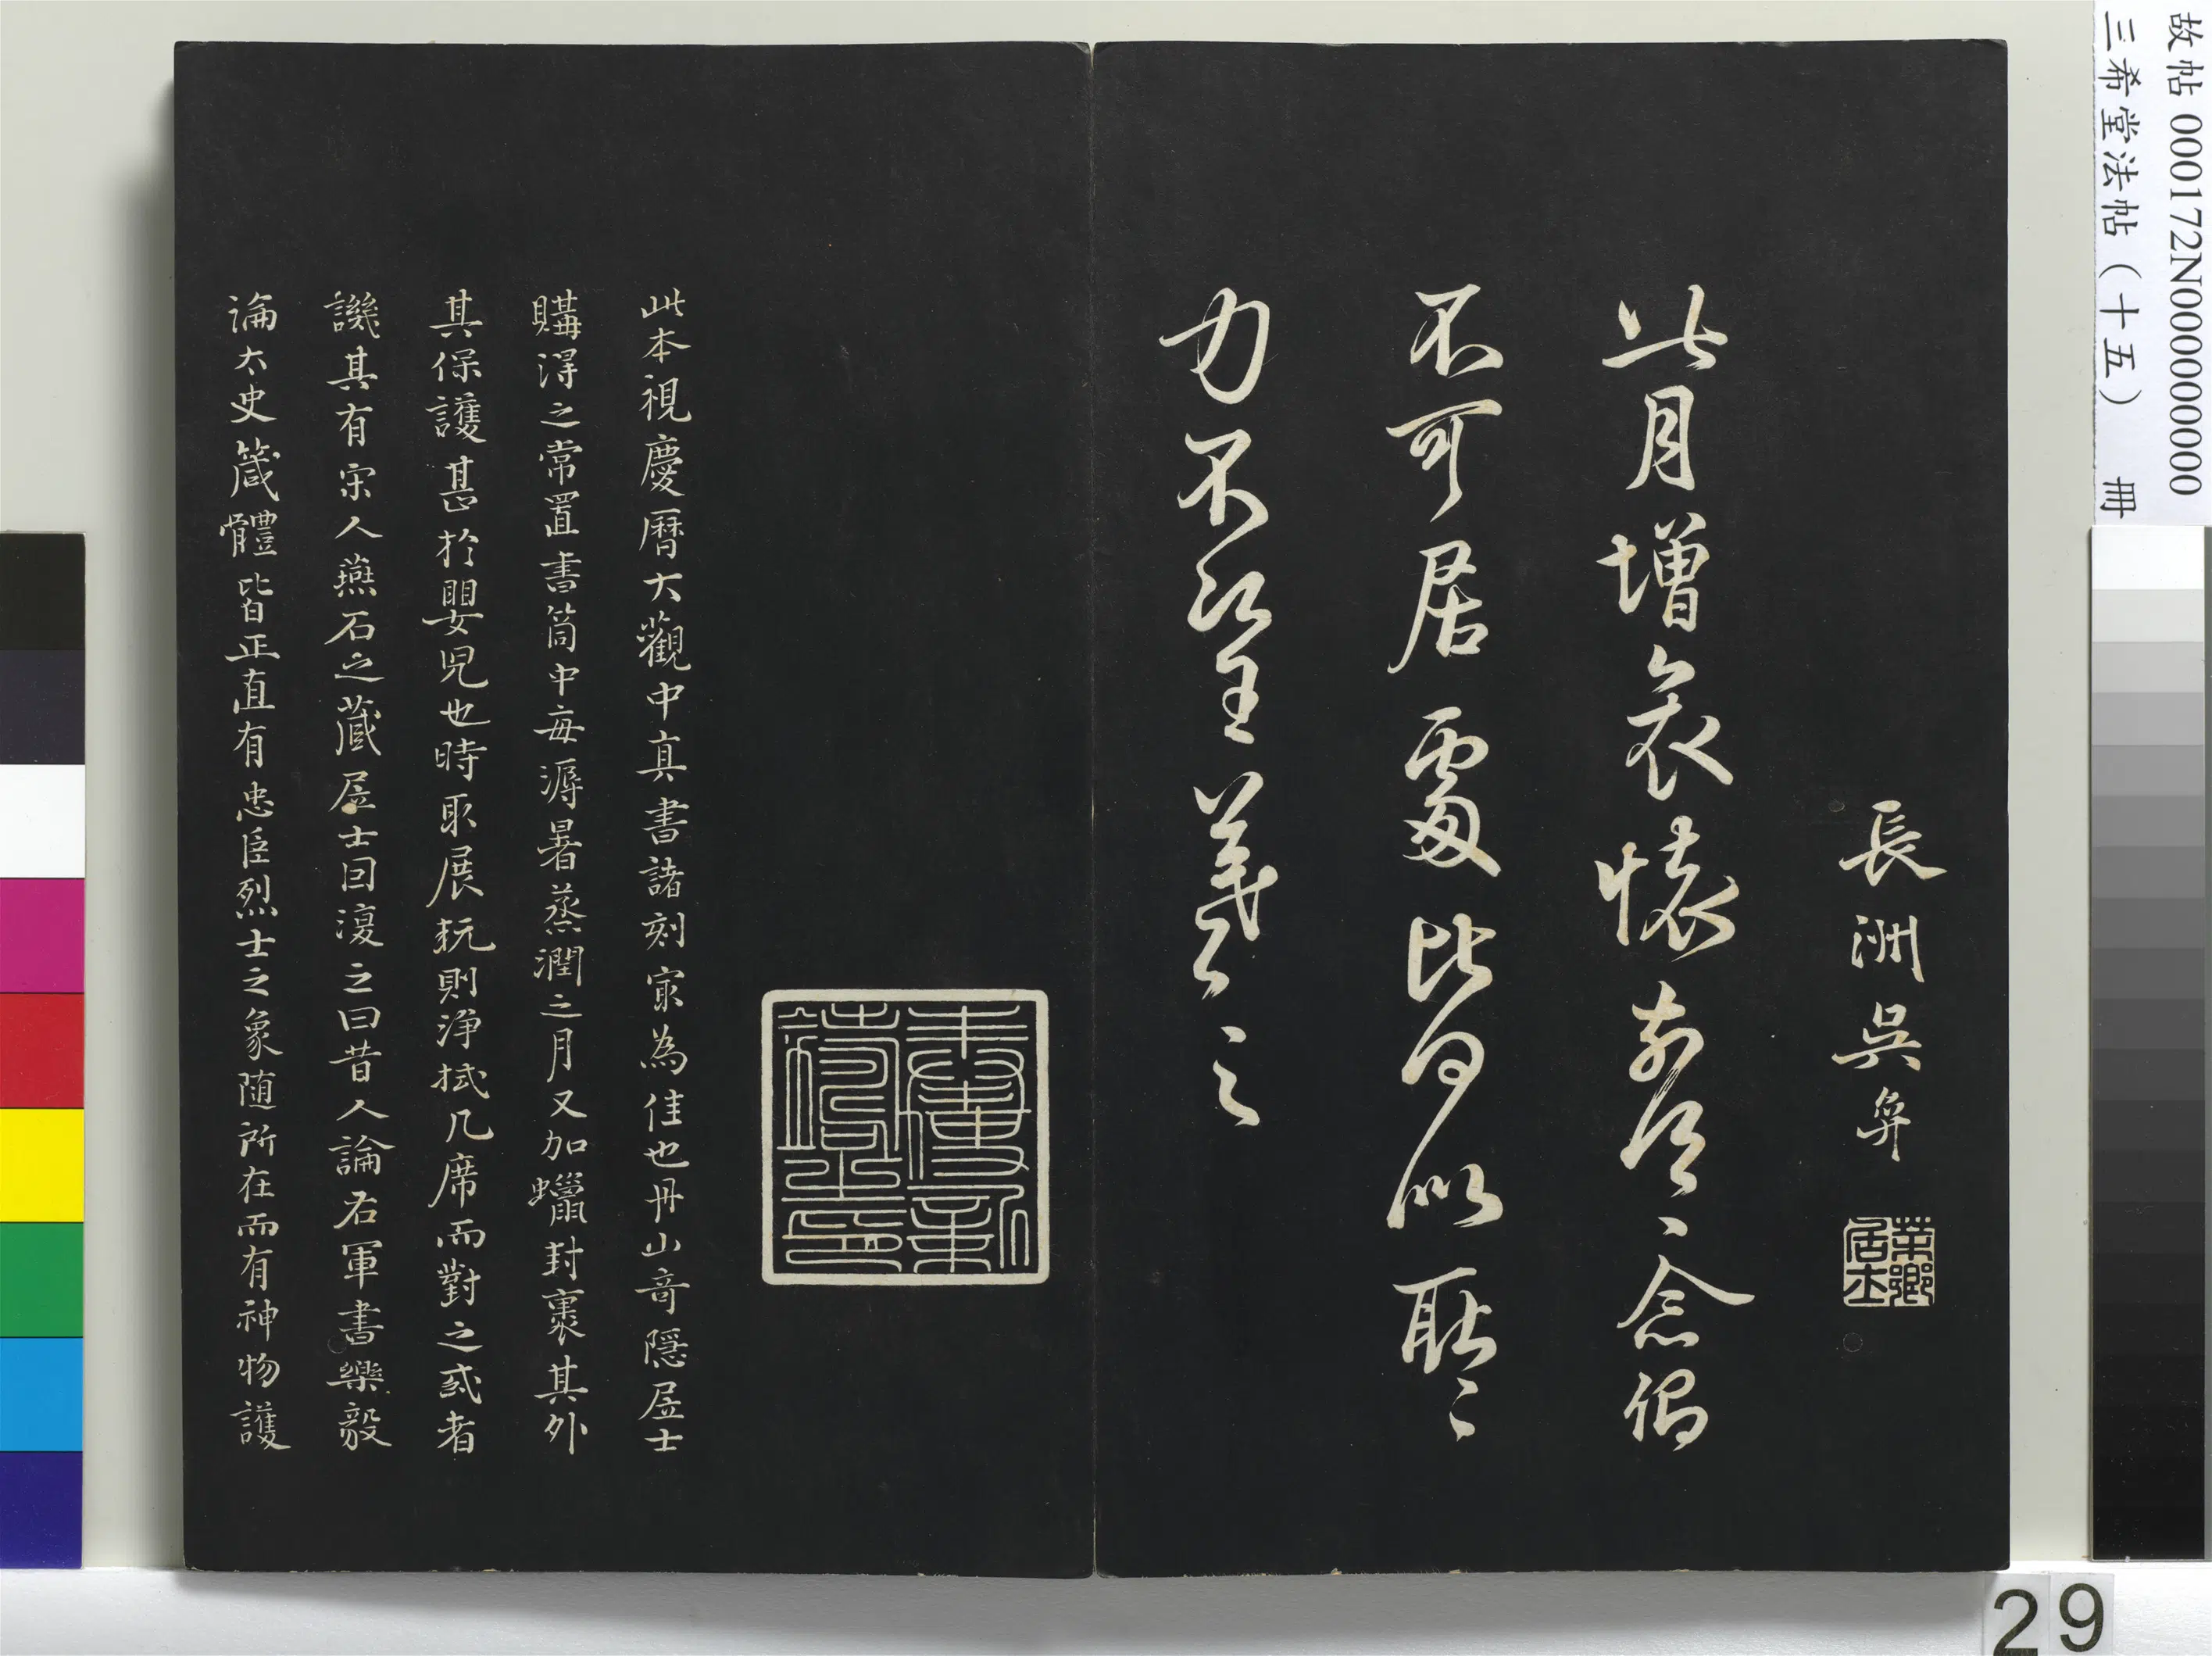 故帖 000172N000000000
三希堂法帖（十五） 冊
長洲吳弈
茶鄉居士
此月增哀懷前須〻念偈
不可居處皆何似耿〻
力不次王羲之〻
此本視慶曆大觀中真書諸刻寂為佳也丹山奇隱居士
購得之常置書筒中每溽暑蒸潤之月又加蠟封裹其外
其保護甚於嬰兒也時取展玩則淨拭几席而對之或者
譏其有宋人燕石之藏居士因復之曰昔人論右軍書樂毅
論太史箴體皆正直有忠臣烈士之象隨所在而有神物護
29